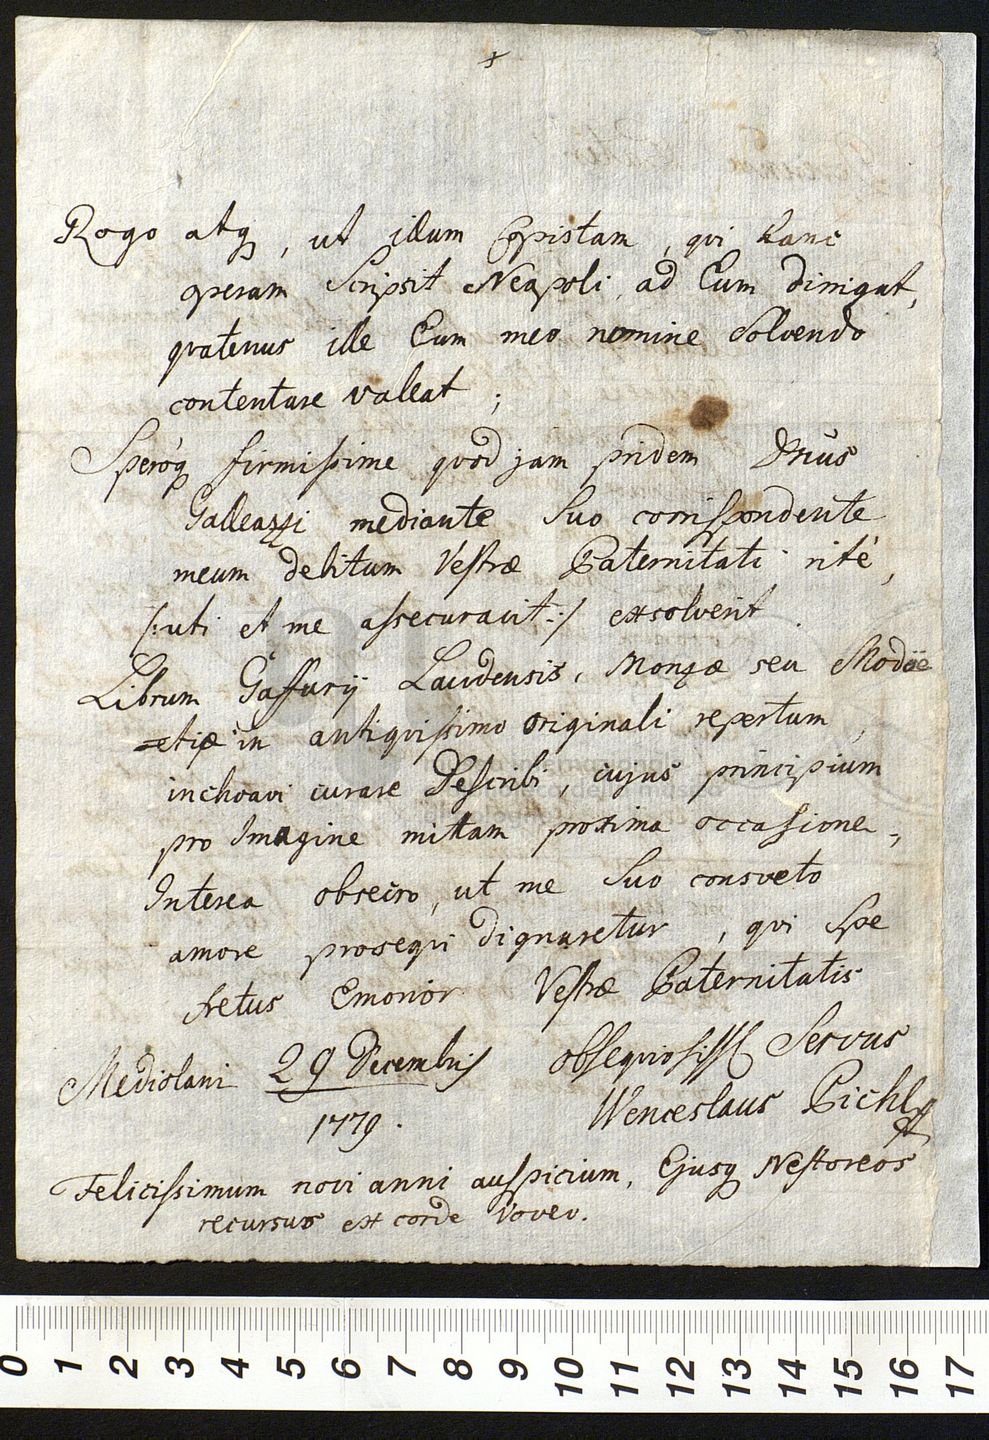 Rogo atq, ut illum Copistam, qui hanc
operam Scripsit Neapoli, ad Eum dirigat,
quatenus ille Eum meo nomine Solvendo
contentare valeat ;
Speroq firmissime quod jam pridem Dnus
Galleazzi mediante Suo corrispondente
meum debitum Vestræ Paternitati rité,
/:uti et me assecuravit:/ exsolverit.
Librum Gaffurij Laudensis, Monzæ seu Modoe
etiæ in antiquissimo originali repertum,
inchoavi curare Describi, cujus principium
pro Imagine mittam proxima occasione,
Interea obsecro, ut me Suo consveto
amore prosequi dignaretur, qui Spe
fretus Emorior Vestræ Paternitatis
Mediolani 29 Decembris obsequiosiss Servus
1779. Wenceslaus Pichl
Felicissimum novi anni auspicium, Ejusq Nestoreos
recursus ex corde Voveo.
0 1 2 3 4 5 6 7 8 9 10 11 12 13 14 15 16 17